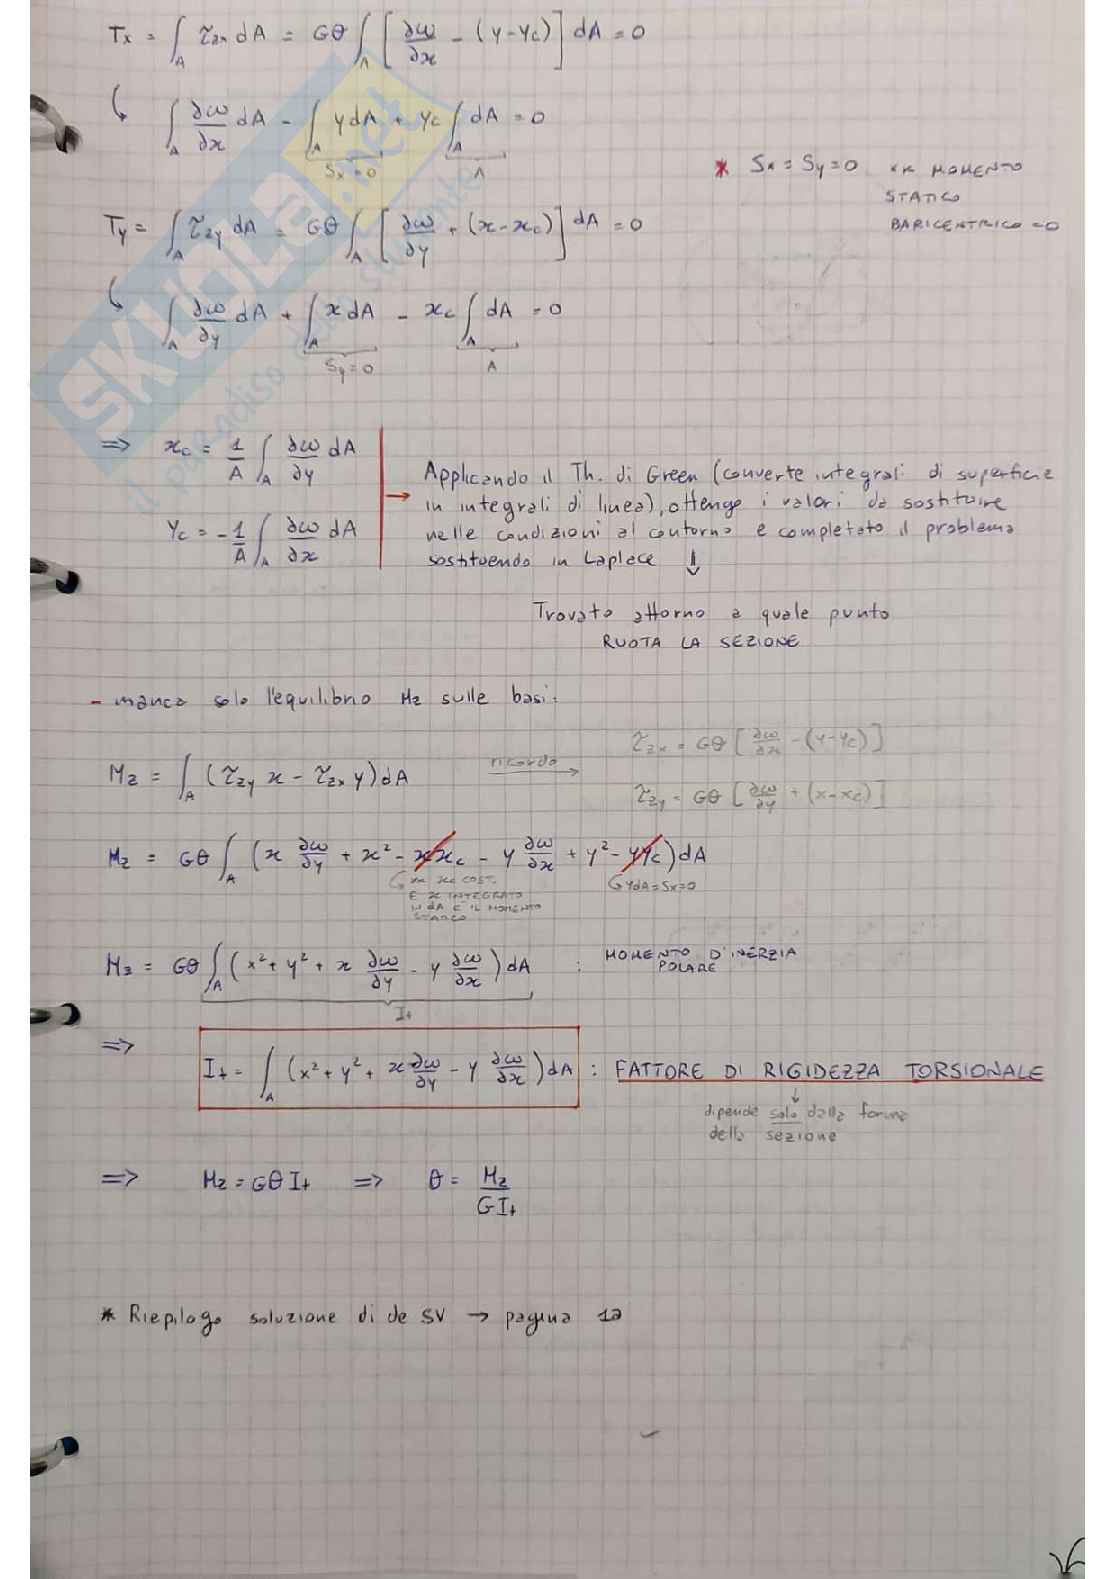 Tx = ∫_A τzx dA = Gθ ∫_A [ ∂ω/∂x - (y-yc) ] dA = 0
∫_A ∂ω/∂x dA - ∫_A y dA + yc ∫_A dA = 0
Sx = 0 A
* Sx = Sy = 0 xk MOMENTO
STATICO
BARICENTRICO = 0
Ty = ∫_A τzy dA = Gθ ∫_A [ ∂ω/∂y + (x-xc) ] dA = 0
∫_A ∂ω/∂y dA + ∫_A x dA - xc ∫_A dA = 0
Sy = 0 A
⇒ xc = 1/A ∫_A ∂ω/∂y dA
yc = -1/A ∫_A ∂ω/∂x dA
→ Applicando il Th. di Green (converte integrali di superficie
in integrali di linea), ottengo i valori da sostituire
nelle condizioni al contorno e completato il problema
sostituendo in Laplace ↓
Trovato attorno a quale punto
RUOTA LA SEZIONE
- manca solo l'equilibrio Mz sulle basi:
Mz = ∫_A (τzy x - τzx y) dA
ricordo →
τzx = Gθ [ ∂ω/∂x - (y-yc) ]
τzy = Gθ [ ∂ω/∂y + (x-xc) ]
Mz = Gθ ∫_A (x ∂ω/∂y + x² - x xc - y ∂ω/∂x + y² - y yc) dA
xk xc COST.
E x INTEGRATO
IN dA E' IL MOMENTO
STATICO
ydA = Sx = 0
Mz = Gθ ∫_A (x² + y² + x ∂ω/∂y - y ∂ω/∂x) dA : MOMENTO D'INERZIA
POLARE
It
⇒ It = ∫_A (x² + y² + x ∂ω/∂y - y ∂ω/∂x) dA : FATTORE DI RIGIDEZZA TORSIONALE
dipende solo dalla forma
della sezione
⇒ Mz = Gθ It ⇒ θ = Mz/GIt
* Riepilogo soluzione di de SV → pagina 12
SKUOLA.net
il paradiso dello studente